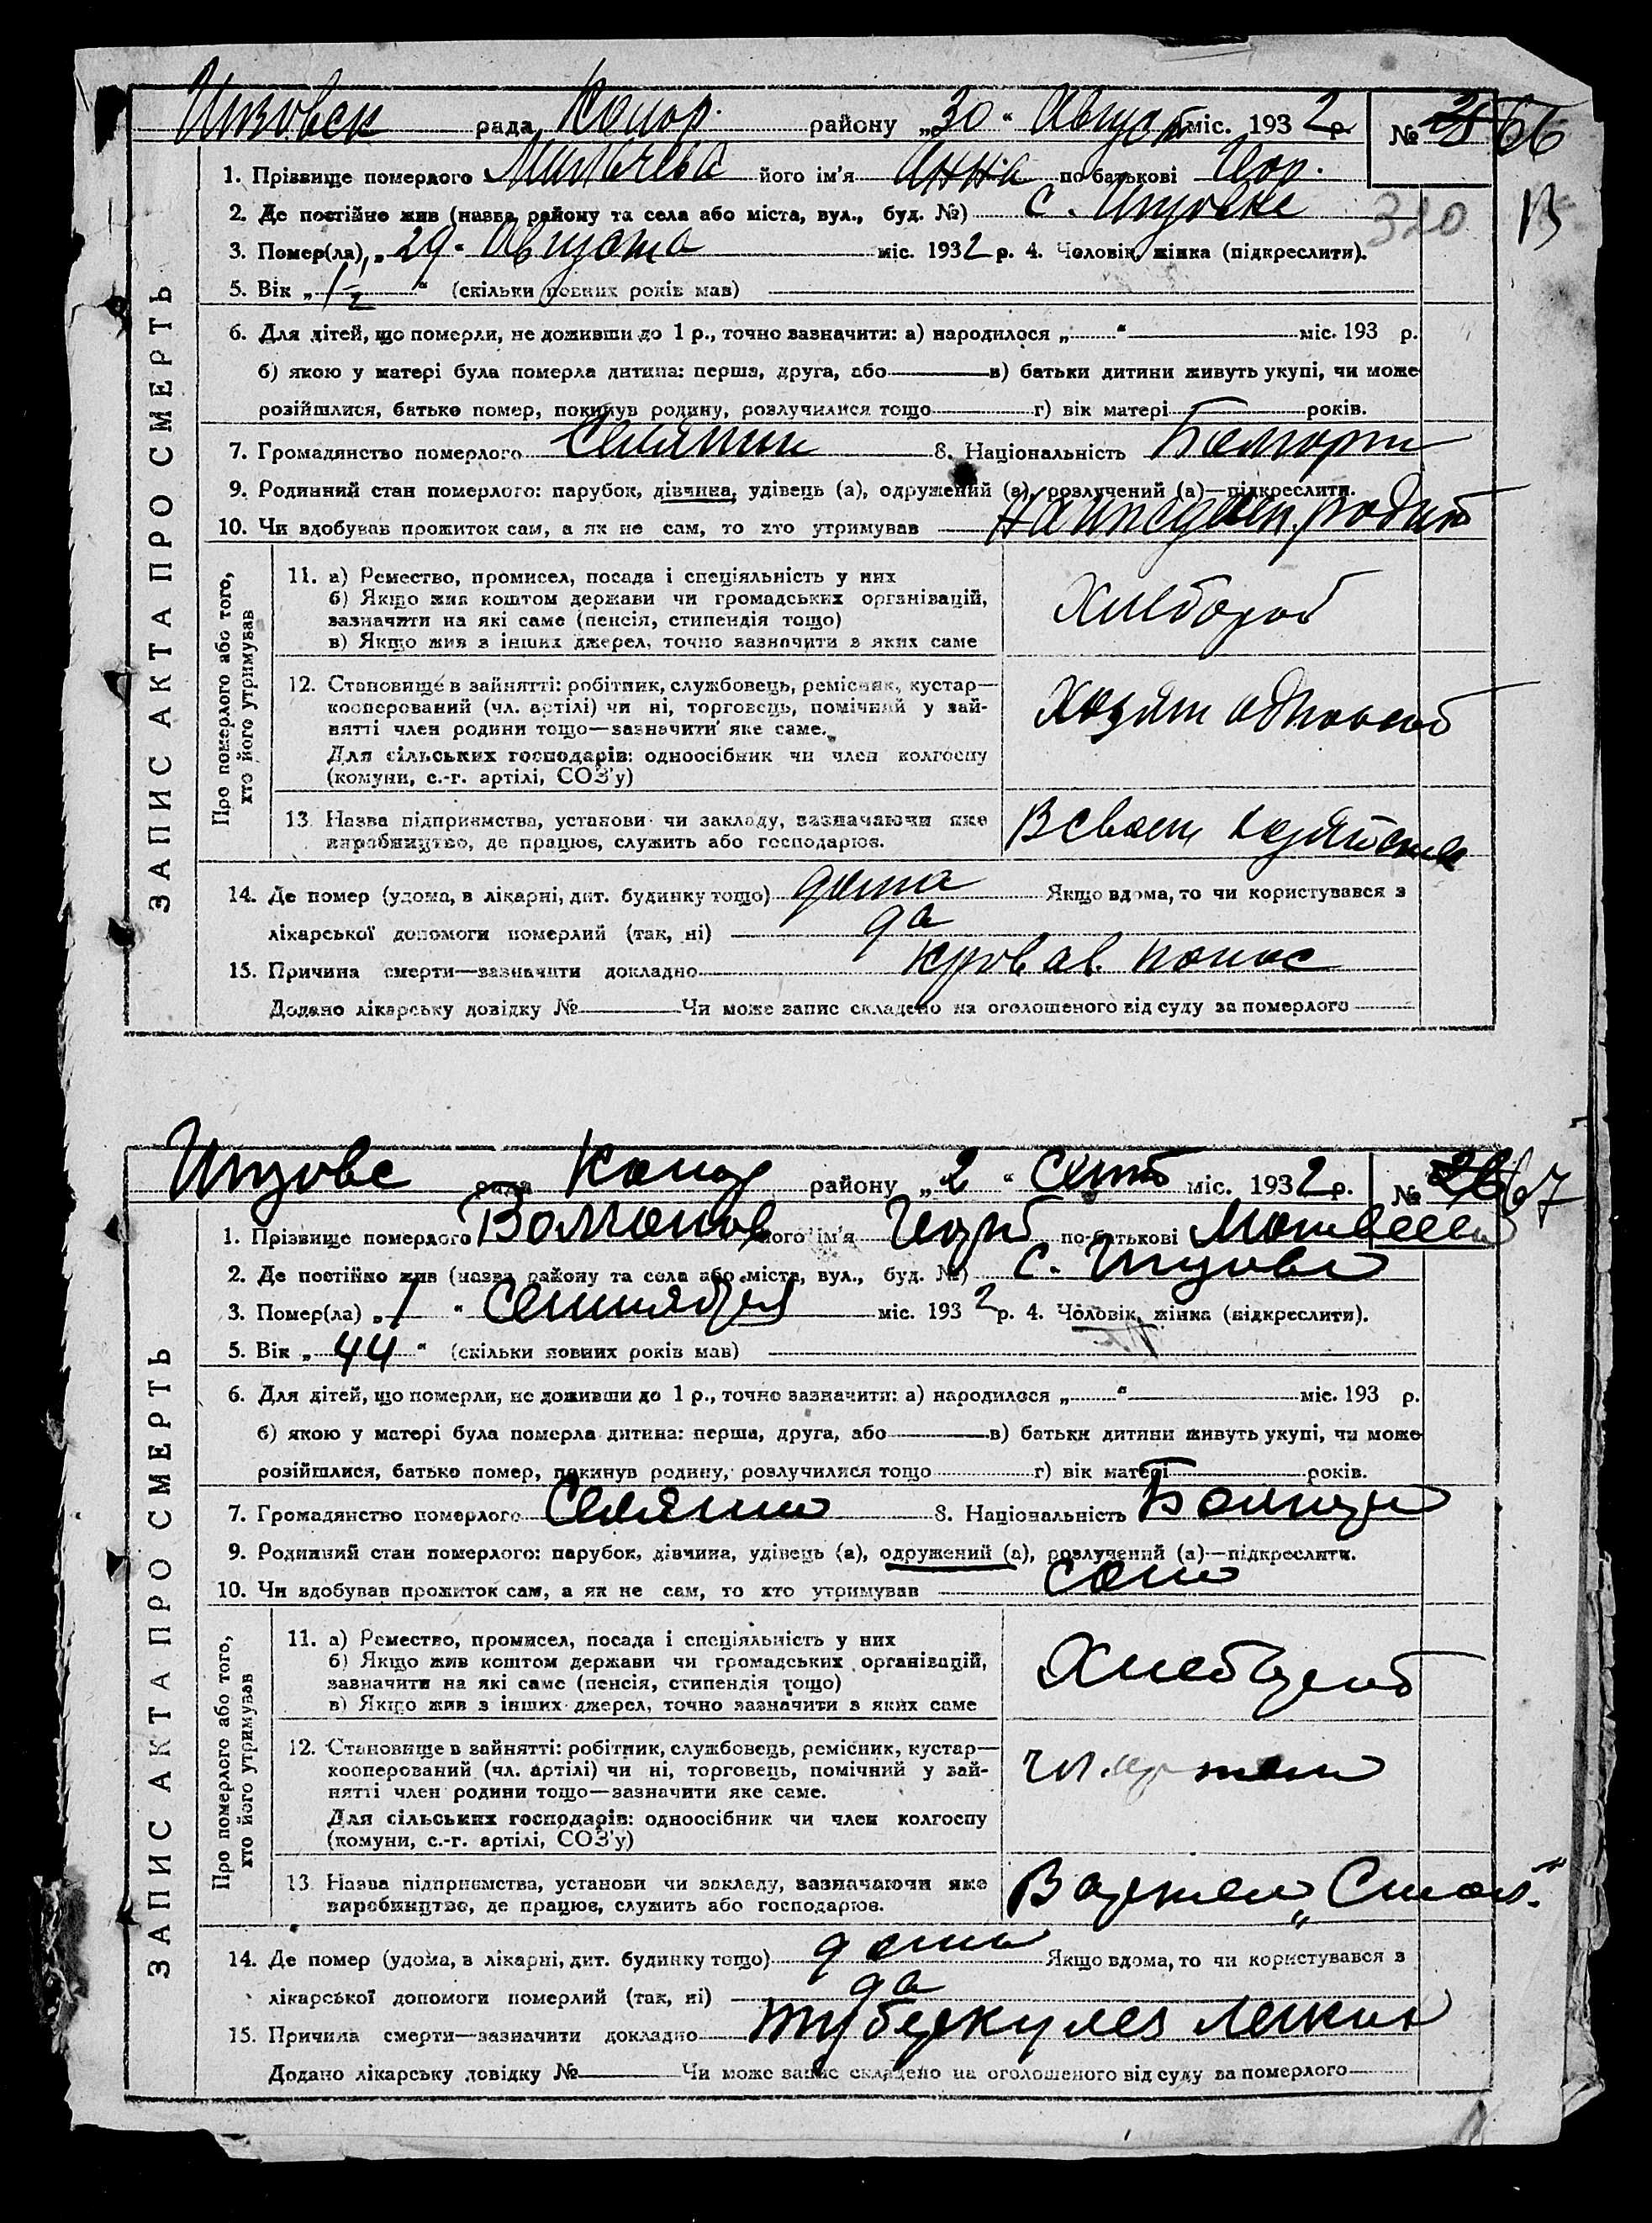 рада района „30“ Август міс. 1932 р. № 66
1. Прізвище померлого його ім'я Анна по батькові
2. Де постійно жив (назва району та села або міста, вул., буд. №) с.
320
В
3. Помер(ла) „29“ Августа міс. 1932 р. 4. Чоловік, жінка (підкреслити).
5. Вік „1 1/2“ (скільки повних років мав)
6. Для дітей, що померли, не доживши до 1 р., точно зазначити: а) народилося „ “ міс. 193 р.
б) якою у матері була померла дитина: перша, друга, або в) батьки дитини живуть укупі, чи може
розійшлися, батько помер, покинув родину, розлучилися тощо г) вік матері років.
7. Громадянство померлого Селянин 8. Національність
9. Родинний стан померлого: парубок, дівчина, удівець (а), одружений (а), розлучений (а)—підкреслити.
10. Чи здобував прожиток сам, а як не сам, то хто утримував На родит
ЗАПИС АКТА ПРО СМЕРТЬ
Про померлого або того,
хто його утримував
11. а) Ремество, промисел, посада і спеціяльність у них
б) Якщо жив коштом держави чи громадських організацій,
зазначити на які саме (пенсія, стипендія тощо)
в) Якщо жив з інших джерел, точно зазначити з яких саме
Хлебороб
12. Становище в зайнятті: робітник, службовець, ремісник, кустар—
кооперований (чл. артілі) чи ні, торговець, помічний у зай-
нятті член родини тощо—зазначити яке саме.
Для сільських господарів: одноосібник чи член колгоспу
(комуни, с.-г. артілі, СОЗ'у)
13. Назва підприємства, установи чи закладу, зазначаючи яке
виробництво, де працює, служить або господарює.
В своем
14. Де помер (удома, в лікарні, дит. будинку тощо) дома Якщо вдома, то чи користувався з
лікарської допомоги померлий (так, ні) да
15. Причина смерти—зазначити докладно кровав. понос
Додано лікарську довідку № Чи може запис складено на оголошеного від суду за померлого
рада району „2“ Сент міс. 1932 р. № 67
1. Прізвище померлого його ім'я по-батькові
2. Де постійно жив (назва району та села або міста, вул., буд. №) с.
3. Помер(ла) „1“ Сентября міс. 1932 р. 4. Чоловік, жінка (підкреслити).
5. Вік „44“ (скільки повних років мав)
6. Для дітей, що померли, не доживши до 1 р., точно зазначити: а) народилося „ “ міс. 193 р.
б) якою у матері була померла дитина: перша, друга, або в) батьки дитини живуть укупі, чи може
розійшлися, батько помер, покинув родину, розлучилися тощо г) вік матері років.
7. Громадянство померлого Селянин 8. Національність
9. Родинний стан померлого: парубок, дівчина, удівець (а), одружений (а), розлучений (а)—підкреслити.
10. Чи здобував прожиток сам, а як не сам, то хто утримував сам
ЗАПИС АКТА ПРО СМЕРТЬ
Про померлого або того,
хто його утримував
11. а) Ремество, промисел, посада і спеціяльність у них
б) Якщо жив коштом держави чи громадських організацій,
зазначити на які саме (пенсія, стипендія тощо)
в) Якщо жив з інших джерел, точно зазначити з яких саме
12. Становище в зайнятті: робітник, службовець, ремісник, кустар—
кооперований (чл. артілі) чи ні, торговець, помічний у зай-
нятті член родини тощо—зазначити яке саме.
Для сільських господарів: одноосібник чи член колгоспу
(комуни, с.-г. артілі, СОЗ'у)
чл. артели
13. Назва підприємства, установи чи закладу, зазначаючи яке
виробництво, де працює, служить або господарює.
В артели
14. Де помер (удома, в лікарні, дит. будинку тощо) дома Якщо вдома, то чи користувався з
лікарської допомоги померлий (так, ні) да
15. Причина смерти—зазначити докладно туберкулез легких
Додано лікарську довідку № Чи може запис складено на оголошеного від суду за померлого